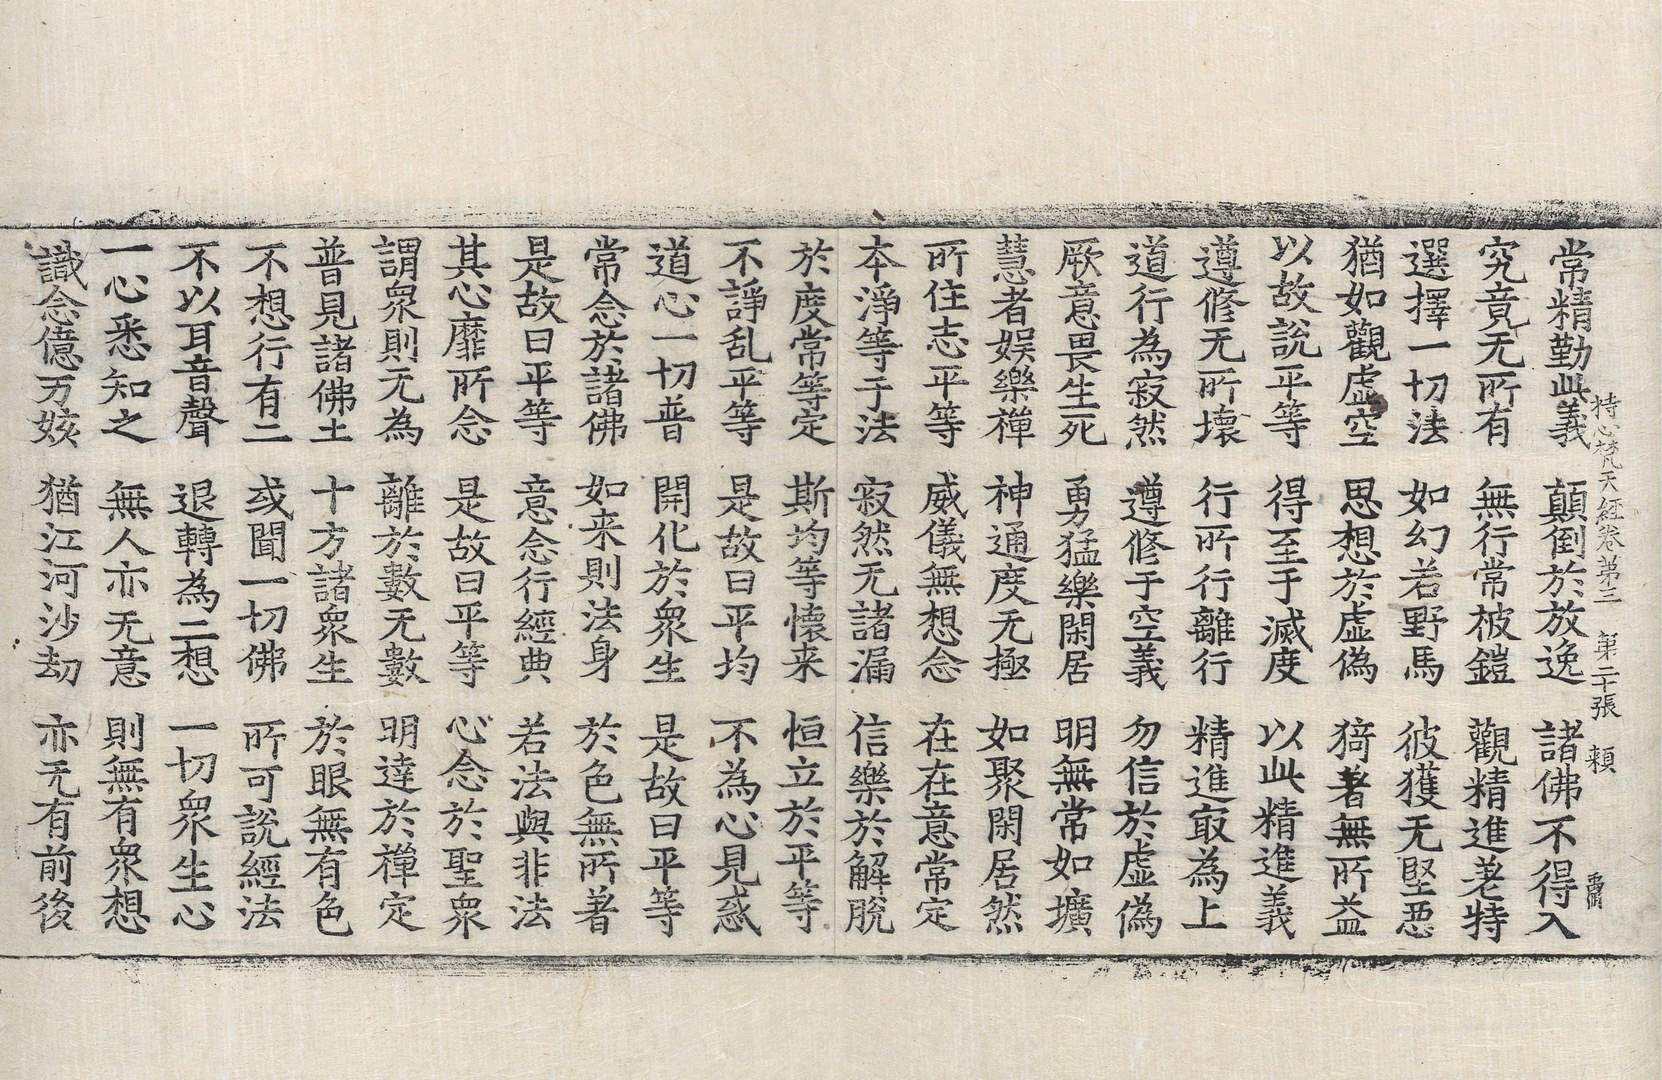 持心梵天経卷第三 第二十張 頼
常精勤此義 顛倒於放逸 諸佛不得入
究竟无所有 無行常被鎧 觀精進老特
選擇一切法 如幻若野馬 彼獲无堅惡
猶如觀虛空 思想於虛偽 猗著無所益
以故說平等 得至于滅度 以此精進義
遵修无所壞 行所行離行 精進㝡為上
道行為寂然 遵修于空義 勿信於虛偽
厥意畏生死 勇猛樂閑居 明無常如壙
慧者娛樂禪 神通度无極 如聚閑居然
所住志平等 威儀無想念 在在意常定
本淨等于法 寂然无諸漏 信樂於解脫
於度常等定 斯均等懷来 恒立於平等
不諍乱平等 是故曰平均 不為心見惑
道心一切普 開化於衆生 是故曰平等
常念於諸佛 如来則法身 於色無所著
是故曰平等 意念行經典 若法與非法
其心靡所念 是故曰平等 心念於聖衆
謂衆則无為 離於數无數 明達於禪定
普見諸佛土 十方諸衆生 於眼無有色
不想行有二 或聞一切佛 所可說經法
不以耳音聲 退轉為二想 一切衆生心
一心悉知之 無人亦无意 則無有衆想
識念億万姟 猶江河沙劫 亦无有前後